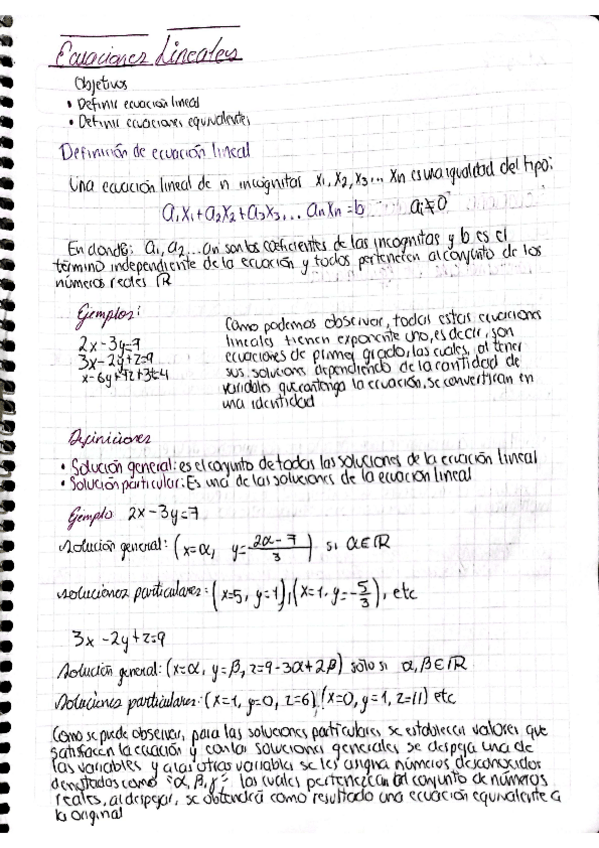 Ecuaciones Lineales
Objetivos
• Definir ecuación lineal
• Definir ecuaciones equivalentes
Definición de ecuación lineal
Una ecuación lineal de n incógnitas x₁, x₂, x₃... xn es una igualdad del tipo:
a₁x₁+a₂x₂+a₃x₃,... anxn=b aᵢ≠0
En donde: a₁, a₂... an son los coeficientes de las incognitas y b es el
término independiente de la ecuación y todos pertenecen al conjunto de los
números reales ℝ
Ejemplos:
2x-3y=7
3x-2y+z=9
x-6y+9z+3t=4
Como podemos observar, todas estas ecuaciones
lineales tienen exponente uno, es decir, son
ecuaciones de primer grado, las cuales, al tener
sus soluciones dependiendo de la cantidad de
variables que contenga la ecuación, se convertiran en
una identidad
Definiciones
• Solución general: es el conjunto de todas las soluciones de la ecuación lineal
• Solución particular: Es una de las soluciones de la ecuación lineal
Ejemplo 2x-3y=7
solución general: (x=α, y=2α-7/3) si α∈ℝ
soluciones particulares: (x=5, y=1), (x=1, y=-5/3), etc
3x-2y+z=9
Solución general: (x=α, y=β, z=9-3α+2β) sólo si α,β∈ℝ
Soluciones particulares: (x=1, y=0, z=6) (x=0, y=1, z=11) etc
Como se puede observar, para las soluciones particulares se establecen valores que
satisfacen la ecuación y con las soluciones generales se despeja una de
las variables y a las otras variables se les asigna números desconocidos
denotados como "α, β, γ" los cuales pertenezcan al conjunto de números
reales, al despejar, se obtendrá como resultado una ecuación equivalente a
la original